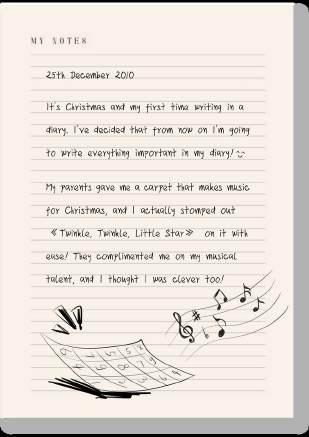 MY NOTES
25th December 2010
It's Christmas and my first time writing in a
diary. I've decided that from now on I'm going
to write everything important in my diary!
My parents gave me a carpet that makes music
for Christmas, and I actually stomped out
《Twinkle, Twinkle, Little Star》 on it with
ease! They complimented me on my musical
talent, and I thought I was clever too!